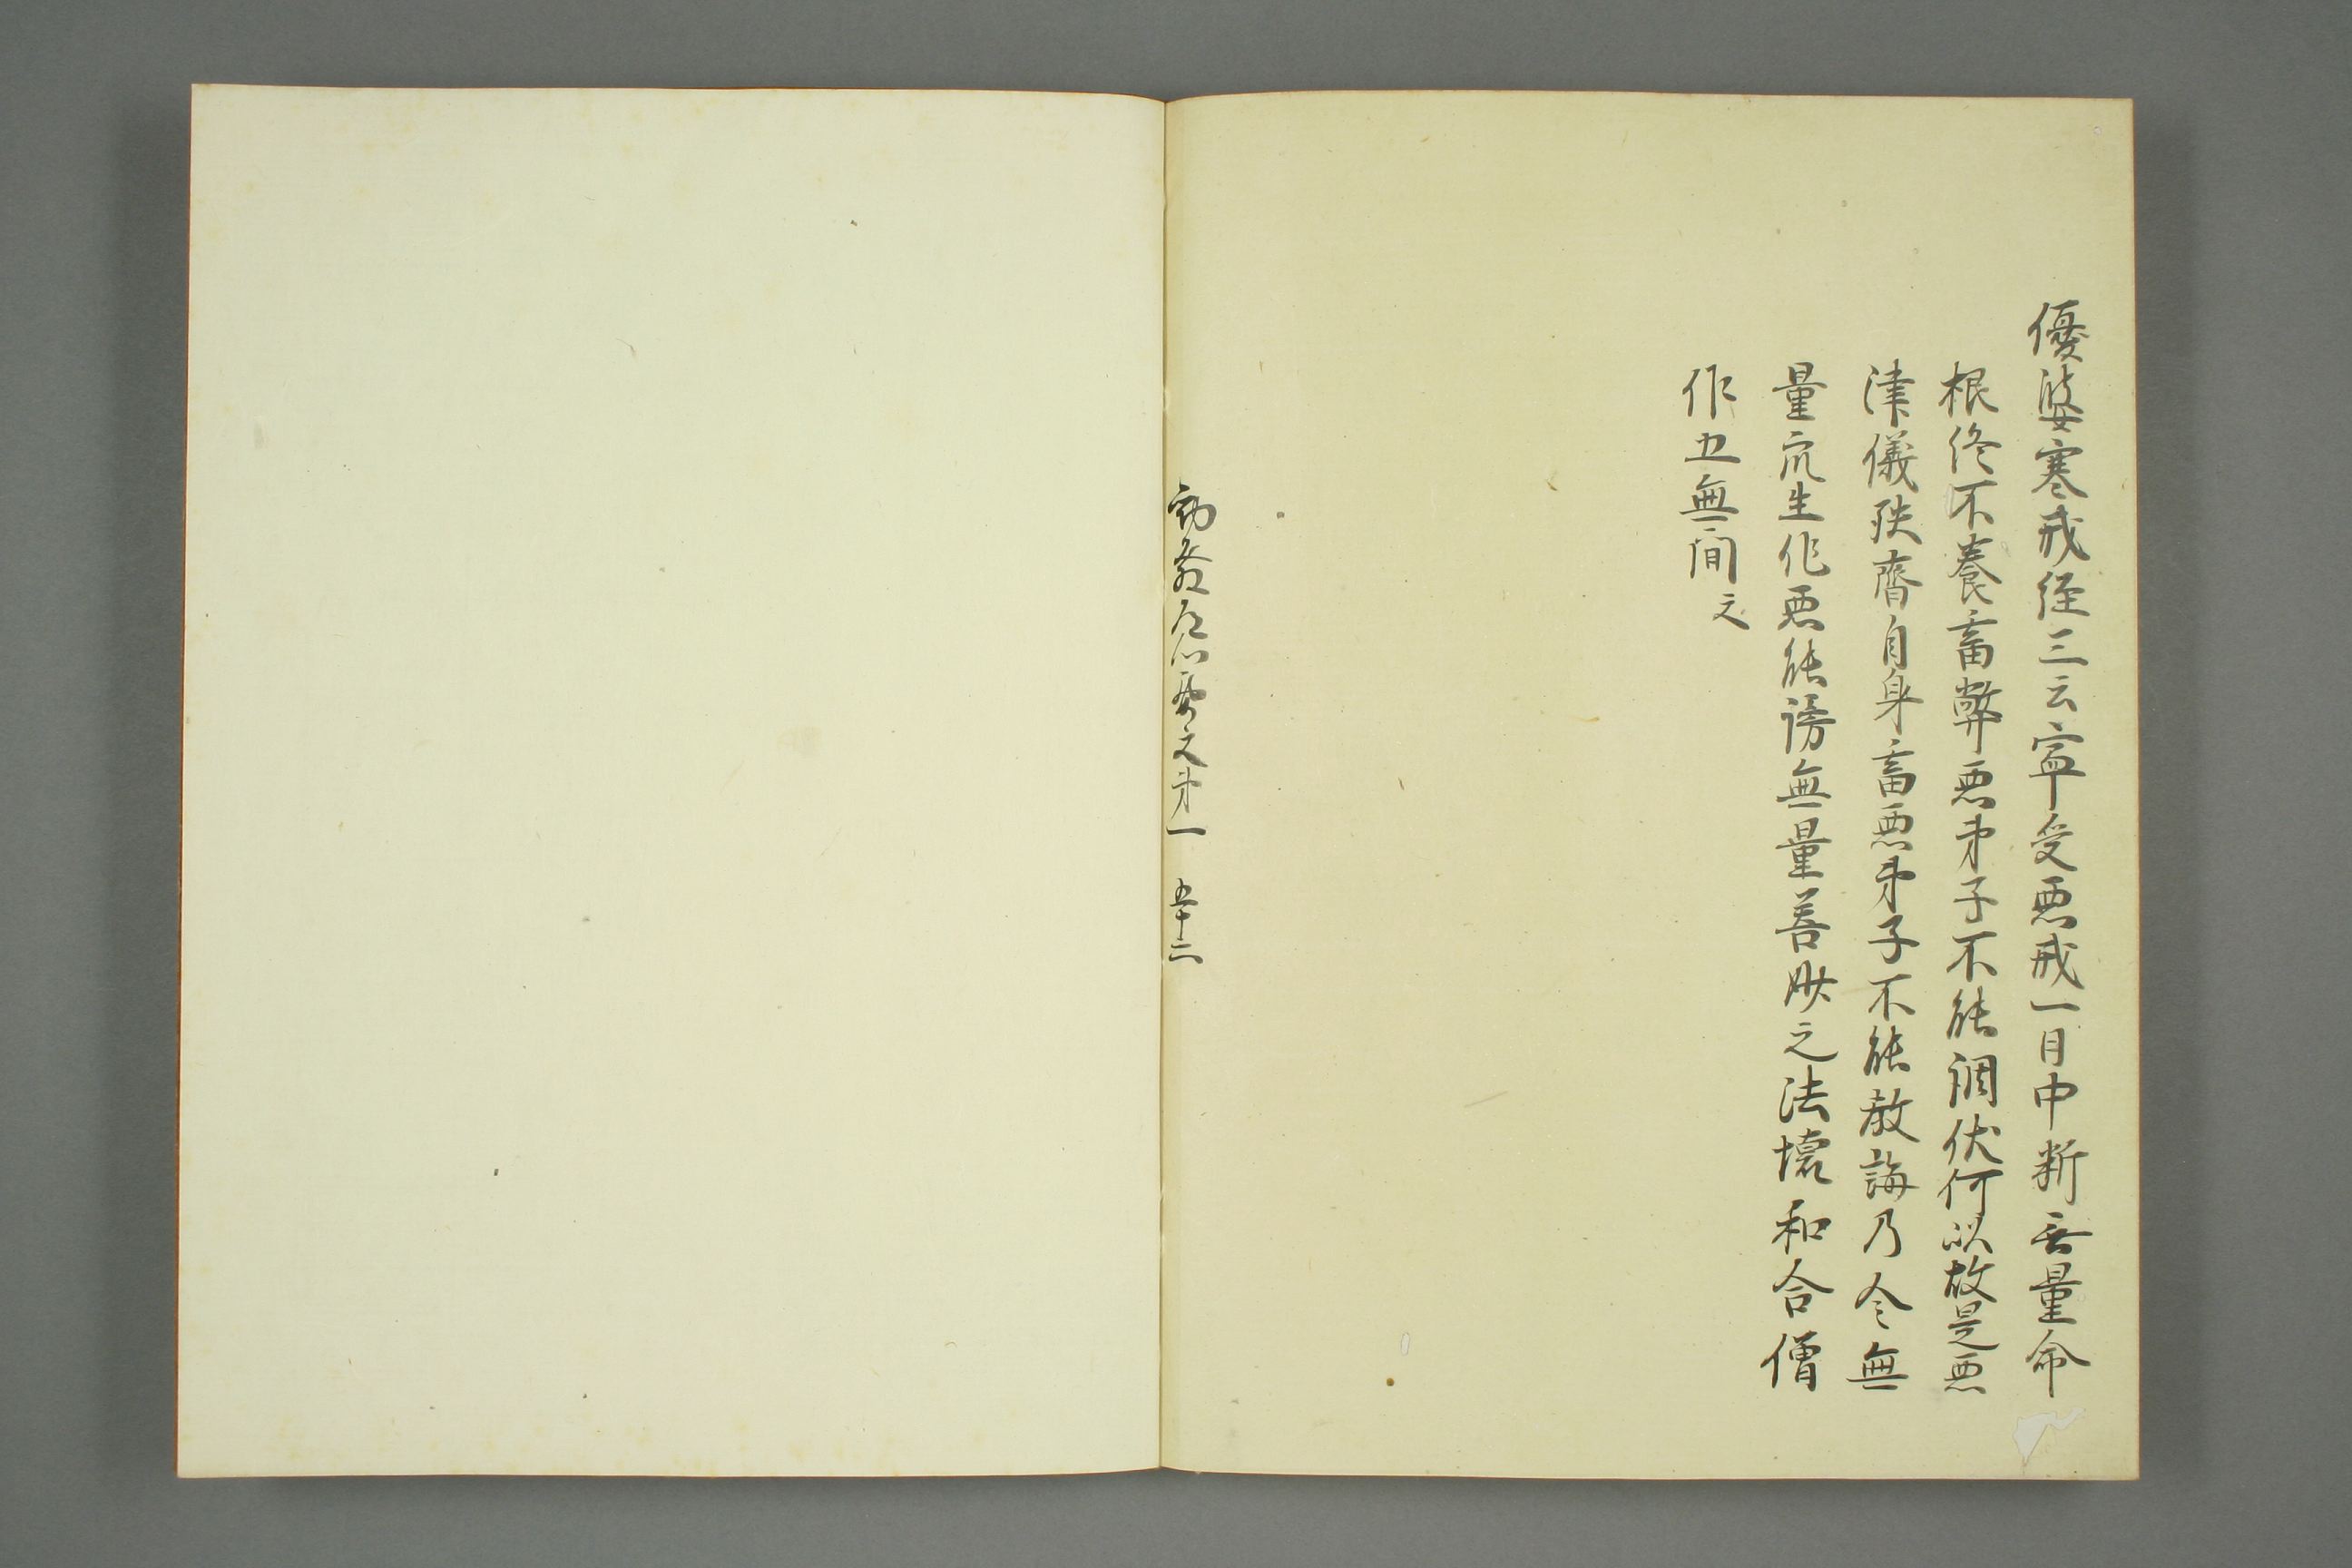 優婆塞戒経三云寧受悪戒一日中断无量命
根終不養畜弊悪弟子不能調伏何以故是悪
律儀殃齊自身畜悪弟子不能教誨乃令無
量衆生作悪能謗無量善妙之法壊和合僧
作五無間文
心要文第一 五十二